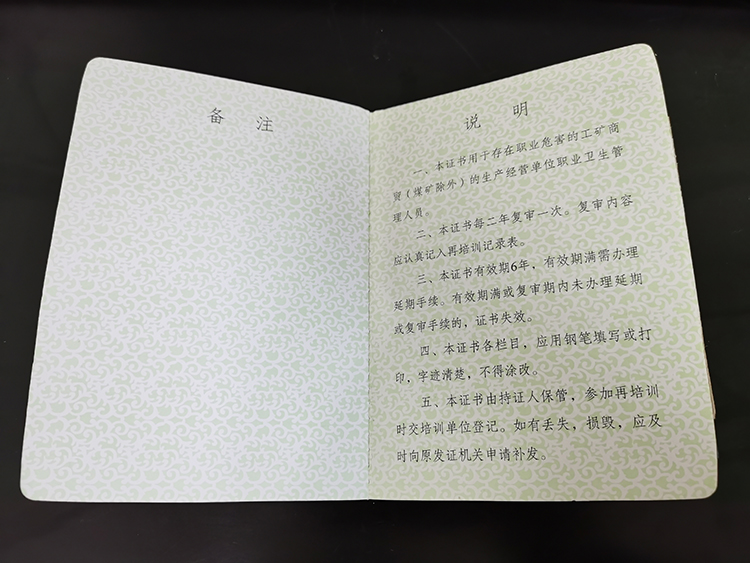 备 注
说 明
一、本证书用于存在职业危害的工矿商
贸（煤矿除外）的生产经营单位职业卫生管
理人员。
二、本证书每二年复审一次。复审内容
应认真记入再培训记录表。
三、本证书有效期6年，有效期满需办理
延期手续。有效期满或复审期内未办理延期
或复审手续的，证书失效。
四、本证书各栏目，应用钢笔填写或打
印，字迹清楚，不得涂改。
五、本证书由持证人保管，参加再培训
时交培训单位登记。如有丢失，损毁，应及
时向原发证机关申请补发。